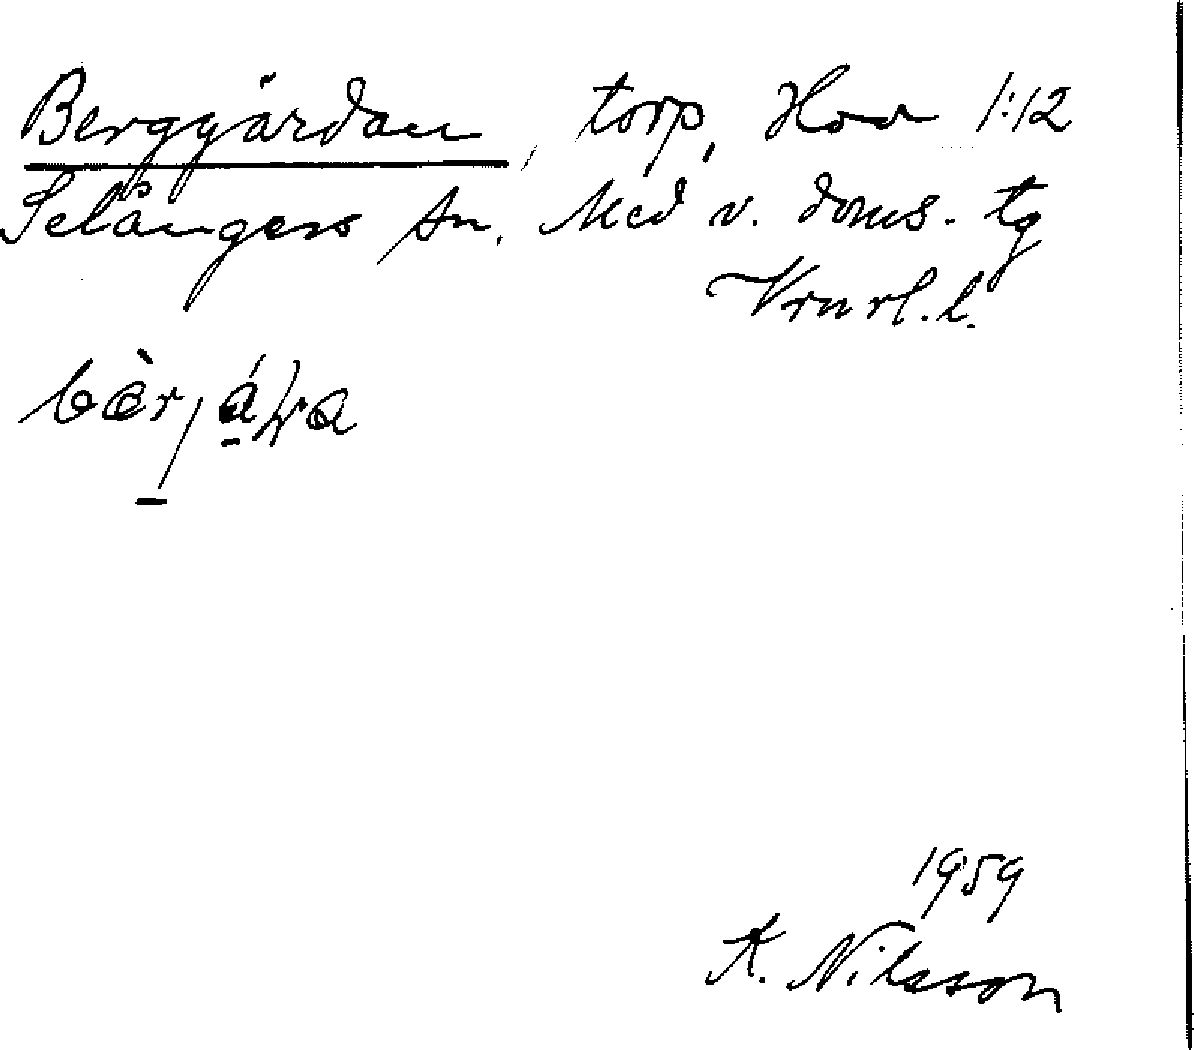 Berggärdan, torp, Hov 1:12
Selångers sn. Med v. doms. tg
Vrnrl. l.
1959
K. Nilsson